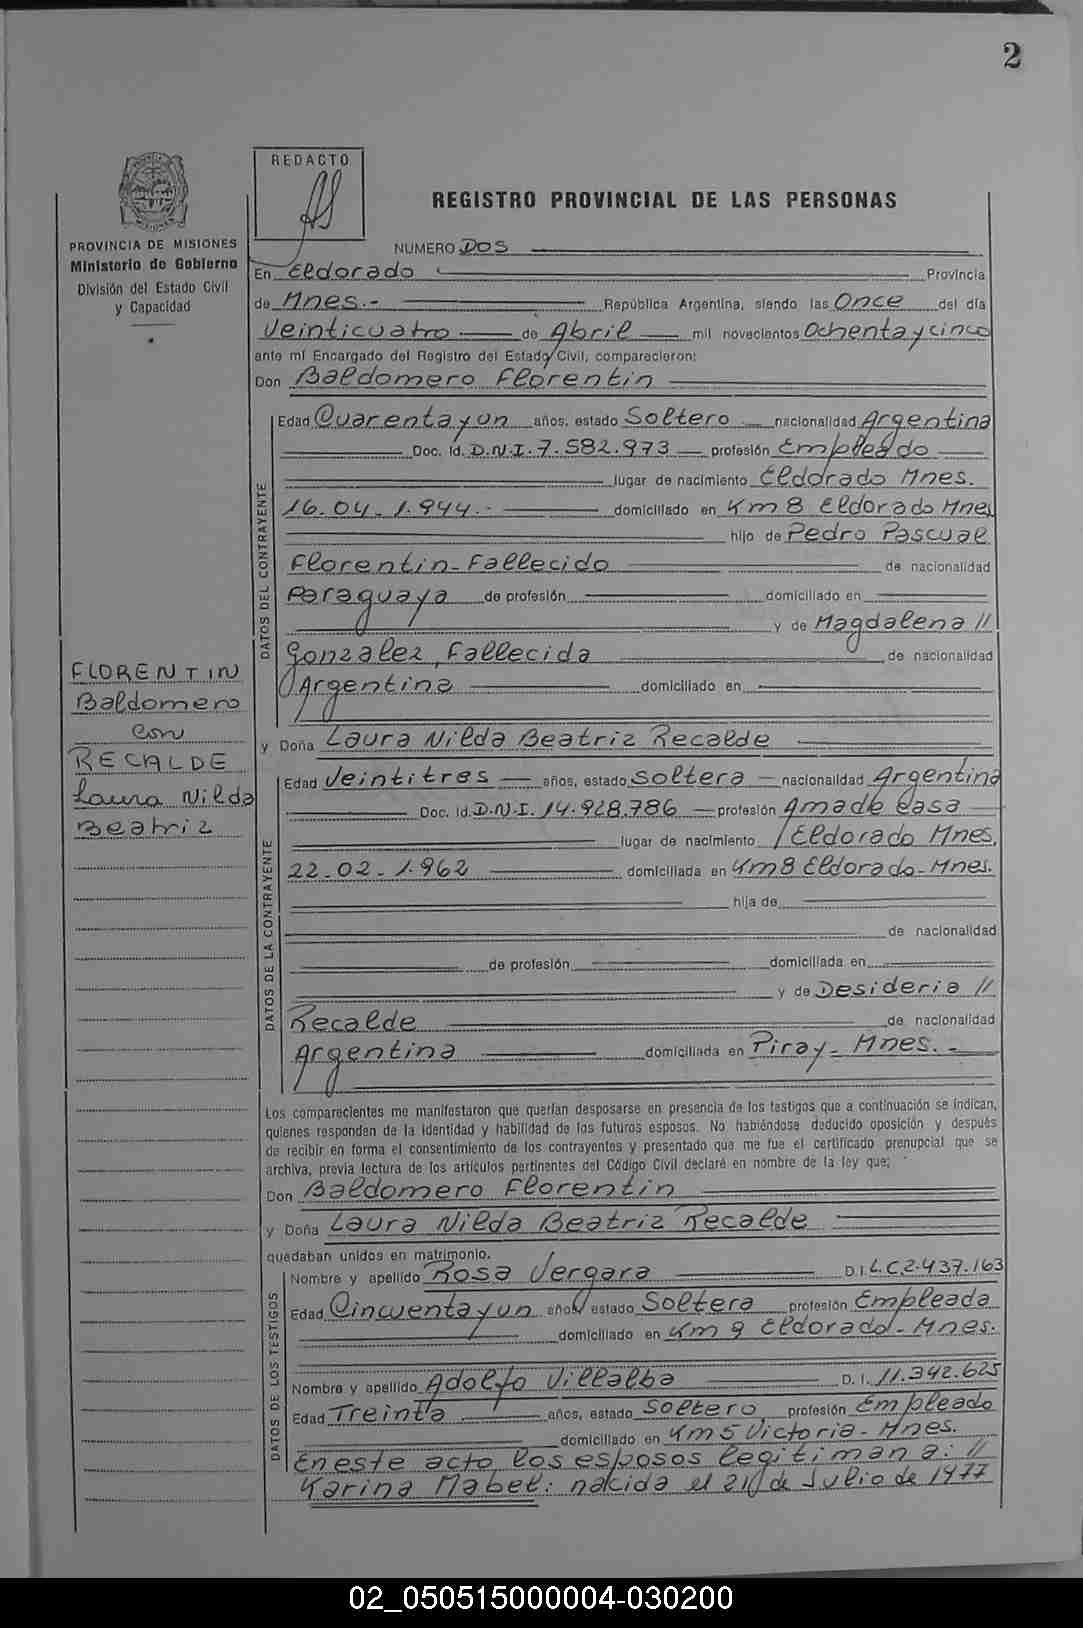 2
REDACTO
REGISTRO PROVINCIAL DE LAS PERSONAS
PROVINCIA DE MISIONES
Ministerio de Gobierno
División del Estado Civil
y Capacidad
NUMERO DOS
En Eldorado Provincia
de Mnes.- República Argentina, siendo las Once del día
Veinticuatro de Abril mil novecientos Ochenta y cinco
ante mí Encargado del Registro del Estado Civil, comparecieron:
Don Baldomero Florentin
DATOS DEL CONTRAYENTE
Edad Cuarenta y un años, estado Soltero nacionalidad Argentina
Doc. Id. D.N.I. 7.582.973 profesión Empleado
lugar de nacimiento Eldorado Mnes.
16.04.1.944.- domiciliado en Km 8 Eldorado Mnes
hijo de Pedro Pascual
Florentin - Fallecido de nacionalidad
Paraguaya de profesión domiciliado en
y de Magdalena //
Gonzalez, Fallecida de nacionalidad
Argentina domiciliado en
FLORENTIN
Baldomero
con
RECALDE
Laura Nilda
Beatriz
y Doña Laura Nilda Beatriz Recalde
DATOS DE LA CONTRAYENTE
Edad Veintitres años, estado Soltera nacionalidad Argentina
Doc. Id. D.N.I. 14.928.786 profesión Ama de casa
lugar de nacimiento Eldorado Mnes.
22-02-1.962 domiciliada en Km 8 Eldorado - Mnes.
hija de
de nacionalidad
de profesión domiciliada en
y de Desideria //
Recalde de nacionalidad
Argentina domiciliada en Piray - Mnes. -
Los comparecientes me manifestaron que querían desposarse en presencia de los testigos que a continuación se indican,
quienes responden de la identidad y habilidad de los futuros esposos. No habiéndose deducido oposición y después
de recibir en forma el consentimiento de los contrayentes y presentado que me fue el certificado prenupcial que se
archiva, previa lectura de los artículos pertinentes del Código Civil declaré en nombre de la ley que;
Don Baldomero Florentin
y Doña Laura Nilda Beatriz Recalde
quedaban unidos en matrimonio.
DATOS DE LOS TESTIGOS
Nombre y apellido Rosa Vergara D.I. L.C 2.437.163
Edad Cincuenta y un años estado Soltera profesión Empleada
domiciliado en Km 9 Eldorado - Mnes.
Nombre y apellido Adolfo Villalba D. I. 11.342.625
Edad Treinta años, estado Soltero profesión Empleado
domiciliado en Km 5 Victoria - Mnes.
En este acto los esposos legitiman a: //
Karina Mabel: nacida el 21 de Julio de 1977
02_050515000004-030200